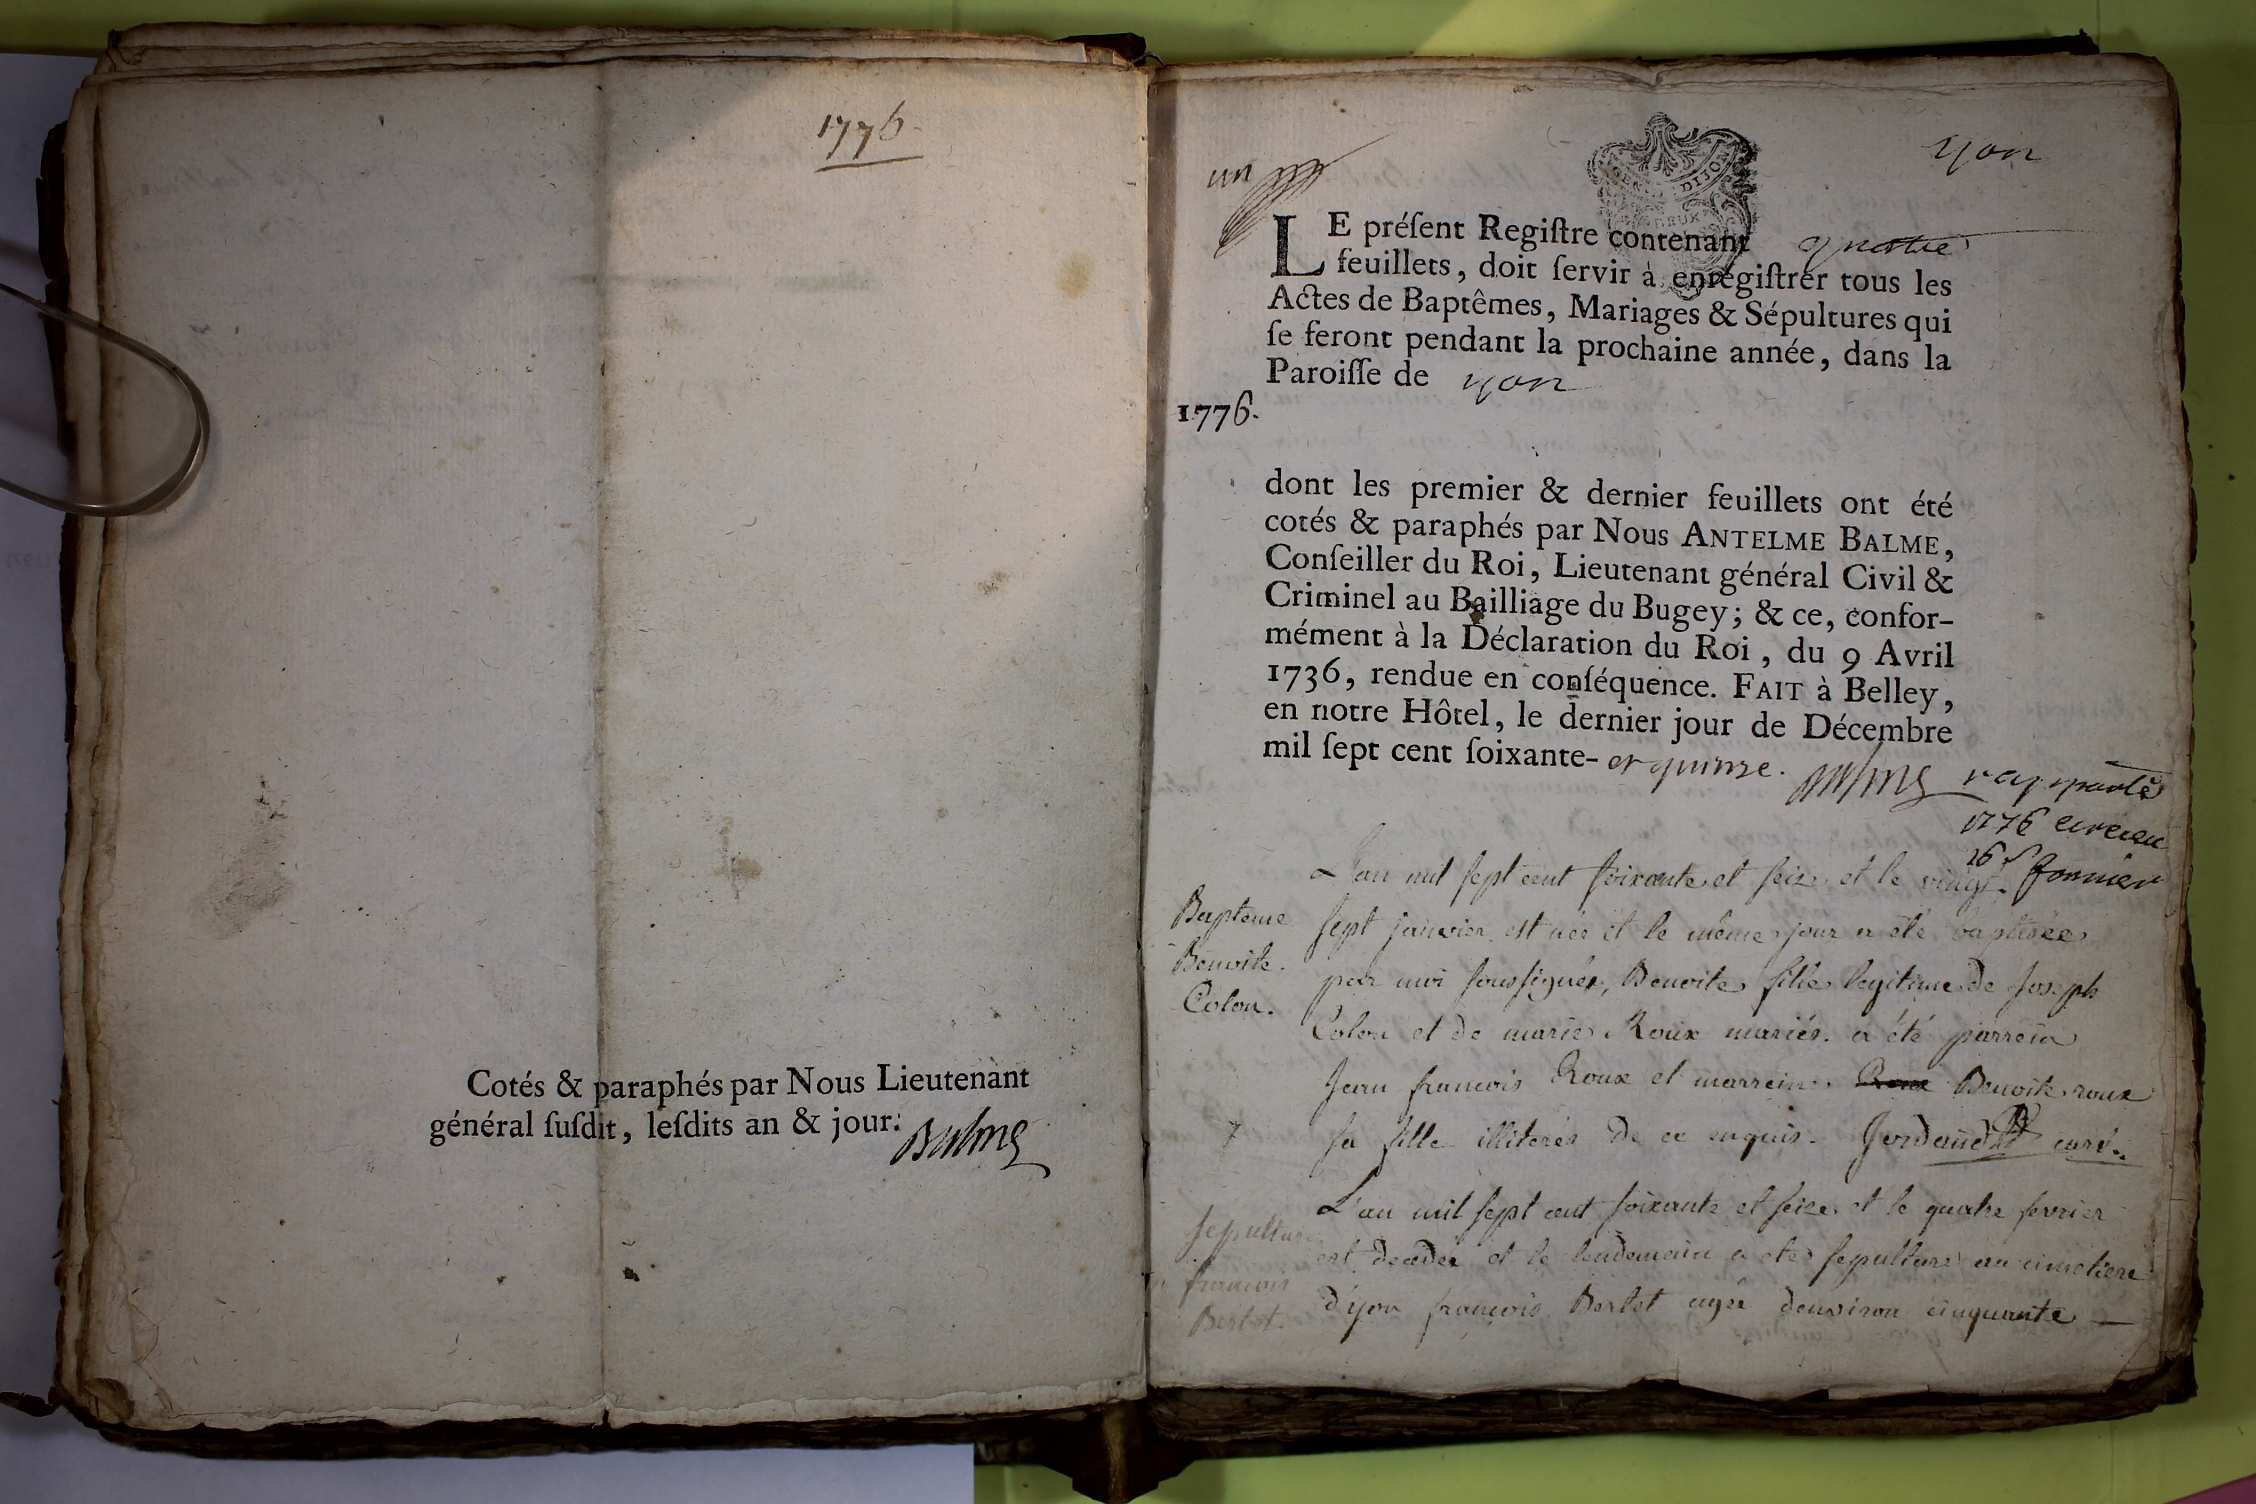 1776.
Cotés & paraphés par Nous Lieutenant
général suſdit, leſdits an & jour.
Balme
un
yon
GENER DIJON
LE préſent Regiſtre contenant quatre
feuillets, doit ſervir à enrégiſtrer tous les
Actes de Baptêmes, Mariages & Sépultures qui
ſe feront pendant la prochaine année, dans la
Paroiſſe de yon
1776.
dont les premier & dernier feuillets ont été
cotés & paraphés par Nous ANTELME BALME,
Conſeiller du Roi, Lieutenant général Civil &
Criminel au Bailliage du Bugey; & ce, confor-
mément à la Déclaration du Roi, du 9 Avril
1736, rendue en conſéquence. FAIT à Belley,
en notre Hôtel, le dernier jour de Décembre
mil ſept cent ſoixante- et quinze. Balme
rapporté
1776
16
L'an mil sept cent soixante et seize et le vingt-
Bapteme
Benoite
Colon.
sept janvier est née et le même jour a été baptisée
par moi soussigné, Benoite fille legitime de Joseph
Colon et de marie Roux mariés. a été parrein
Jean francois Roux et marreine Roux Benoite roux
sa fille illiterés de ce enquis. Jordand curé.
Sepulture
francois
Bertet.
L'an mil sept cent soixante et seize et le quatre fevrier
est decedé et le lendemain a eté sepulturé au cimetiere
d'yon françois Bertet agée d'environ cinquante